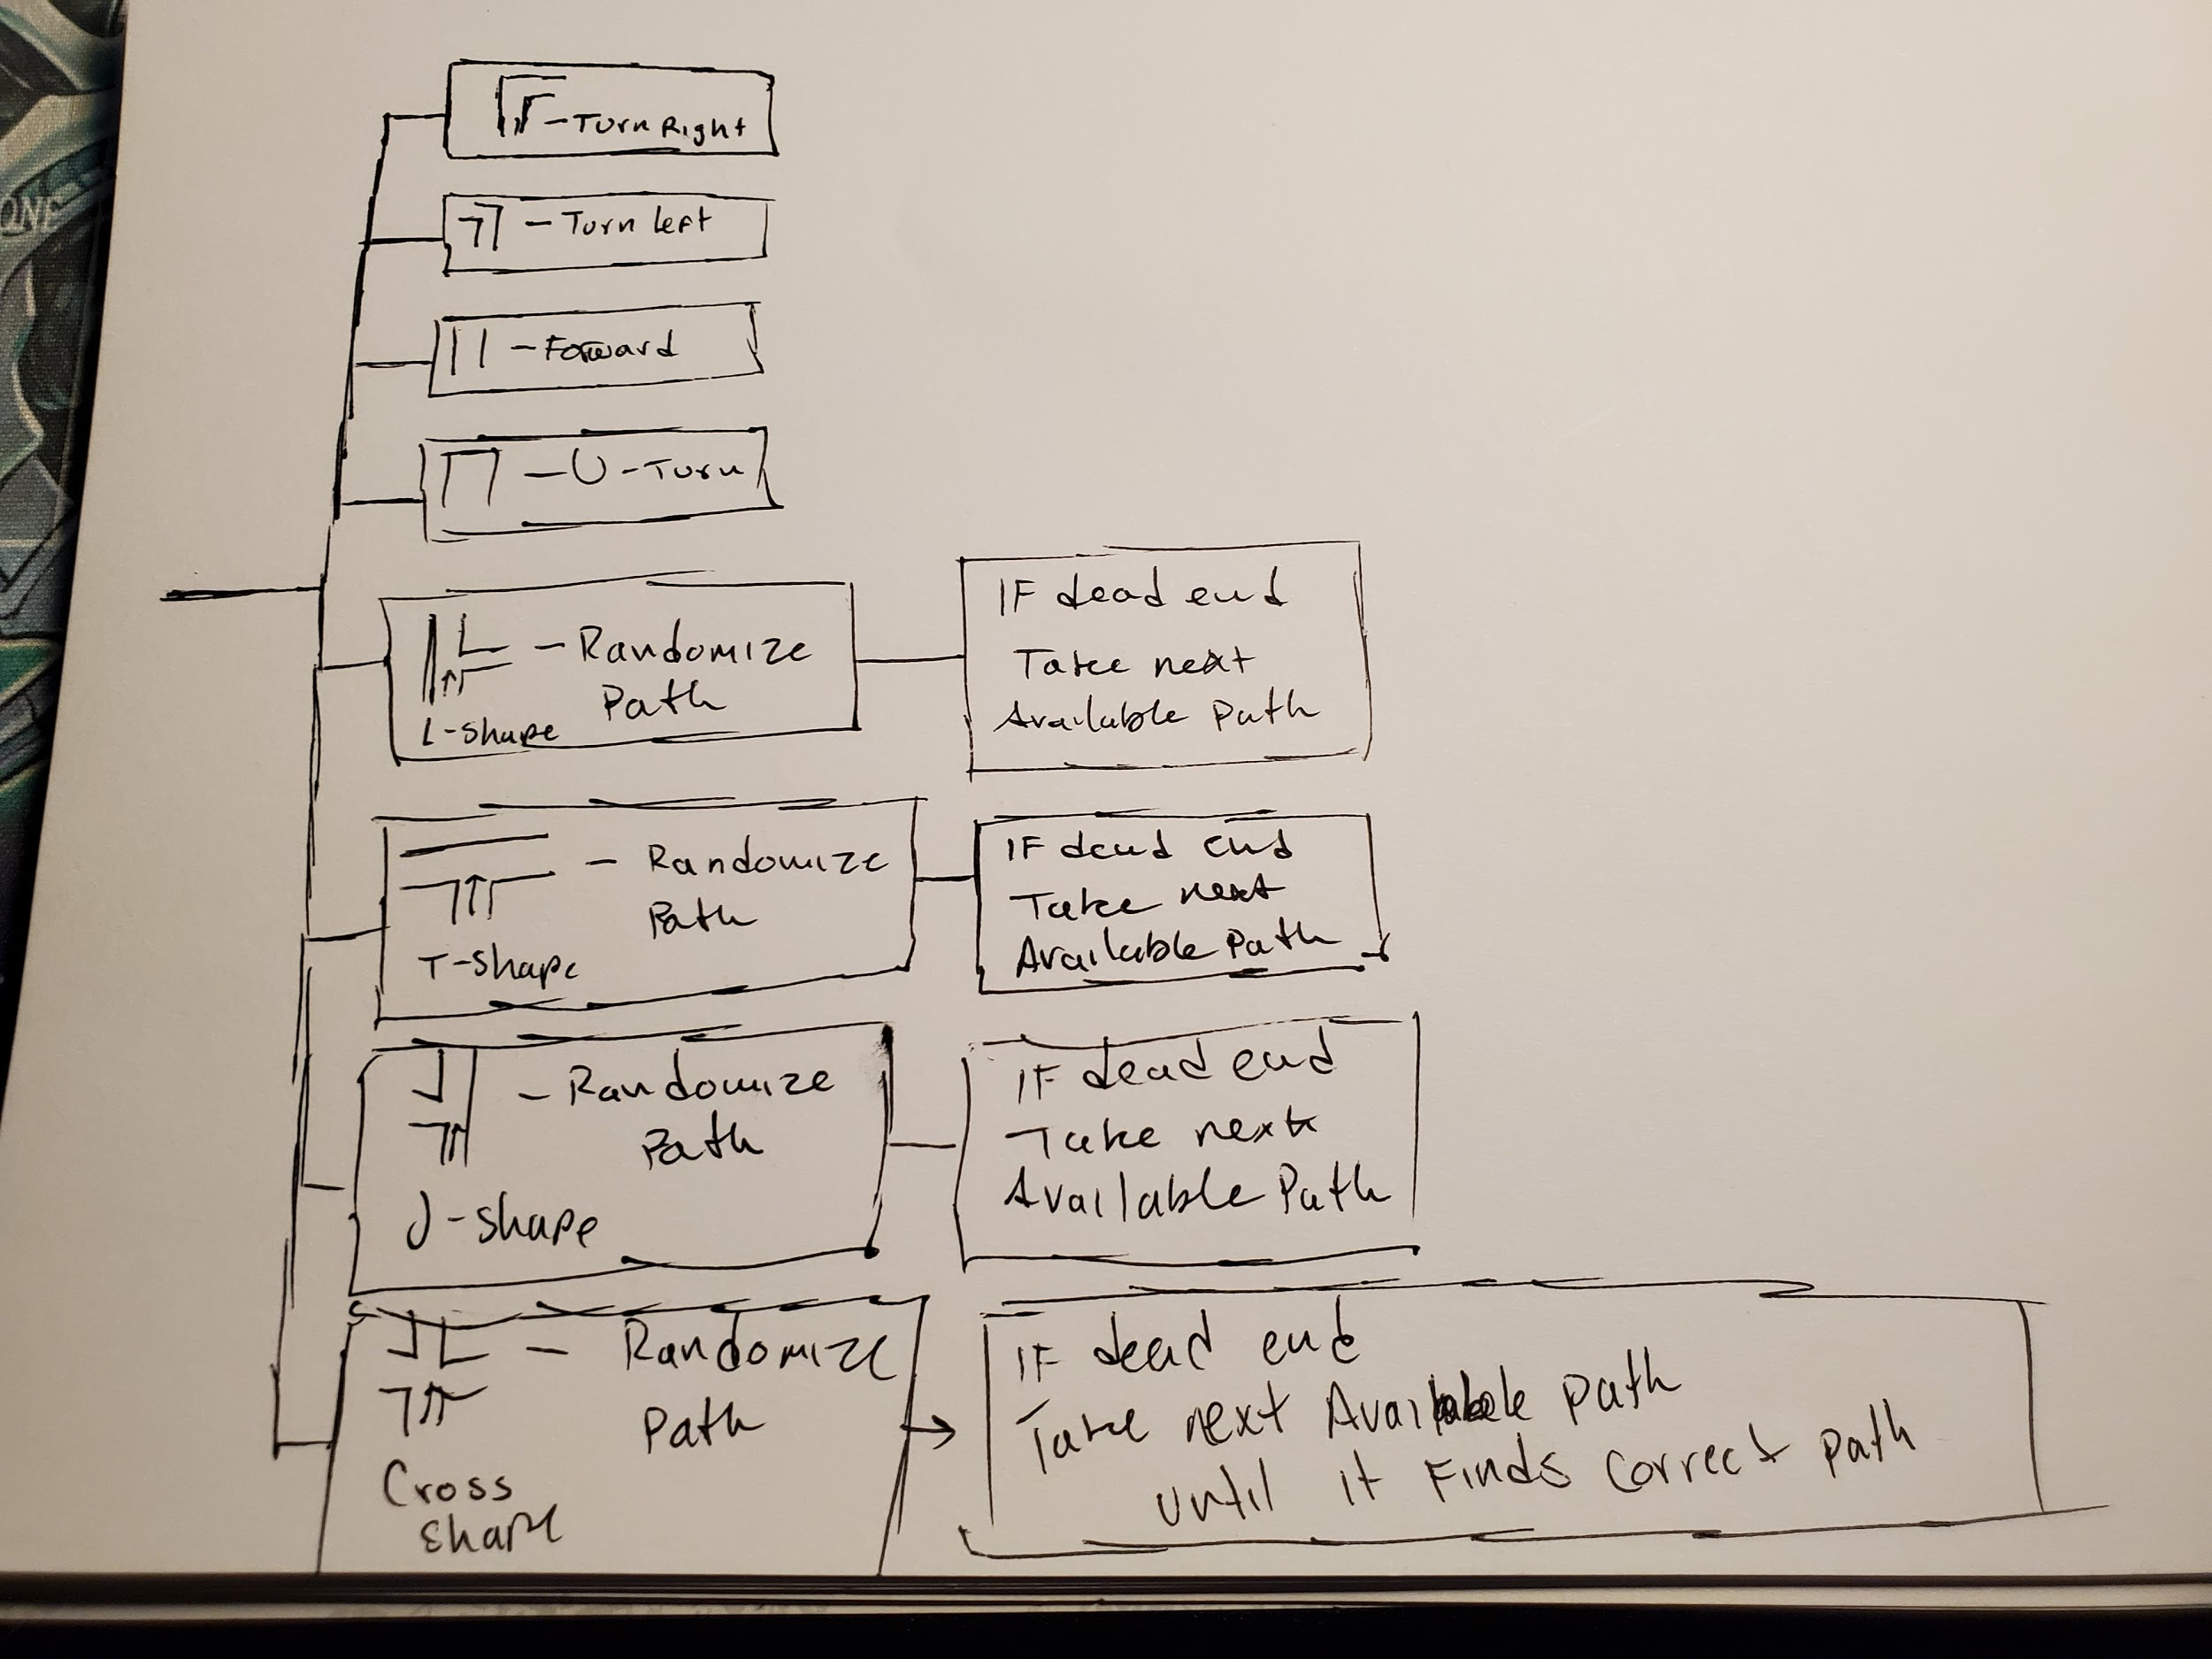 - Turn Right
- Turn left
- Forward
- U-Turn
- Randomize
Path
L-shape
IF dead end
Take next
Available path
- Randomize
Path
T-shape
IF dead end
Take next
Available Path
- Randomize
Path
J-shape
IF dead end
Take next
Available Path
- Randomize
Path
Cross
shape
IF dead end
Take next Available path
until it Finds correct path